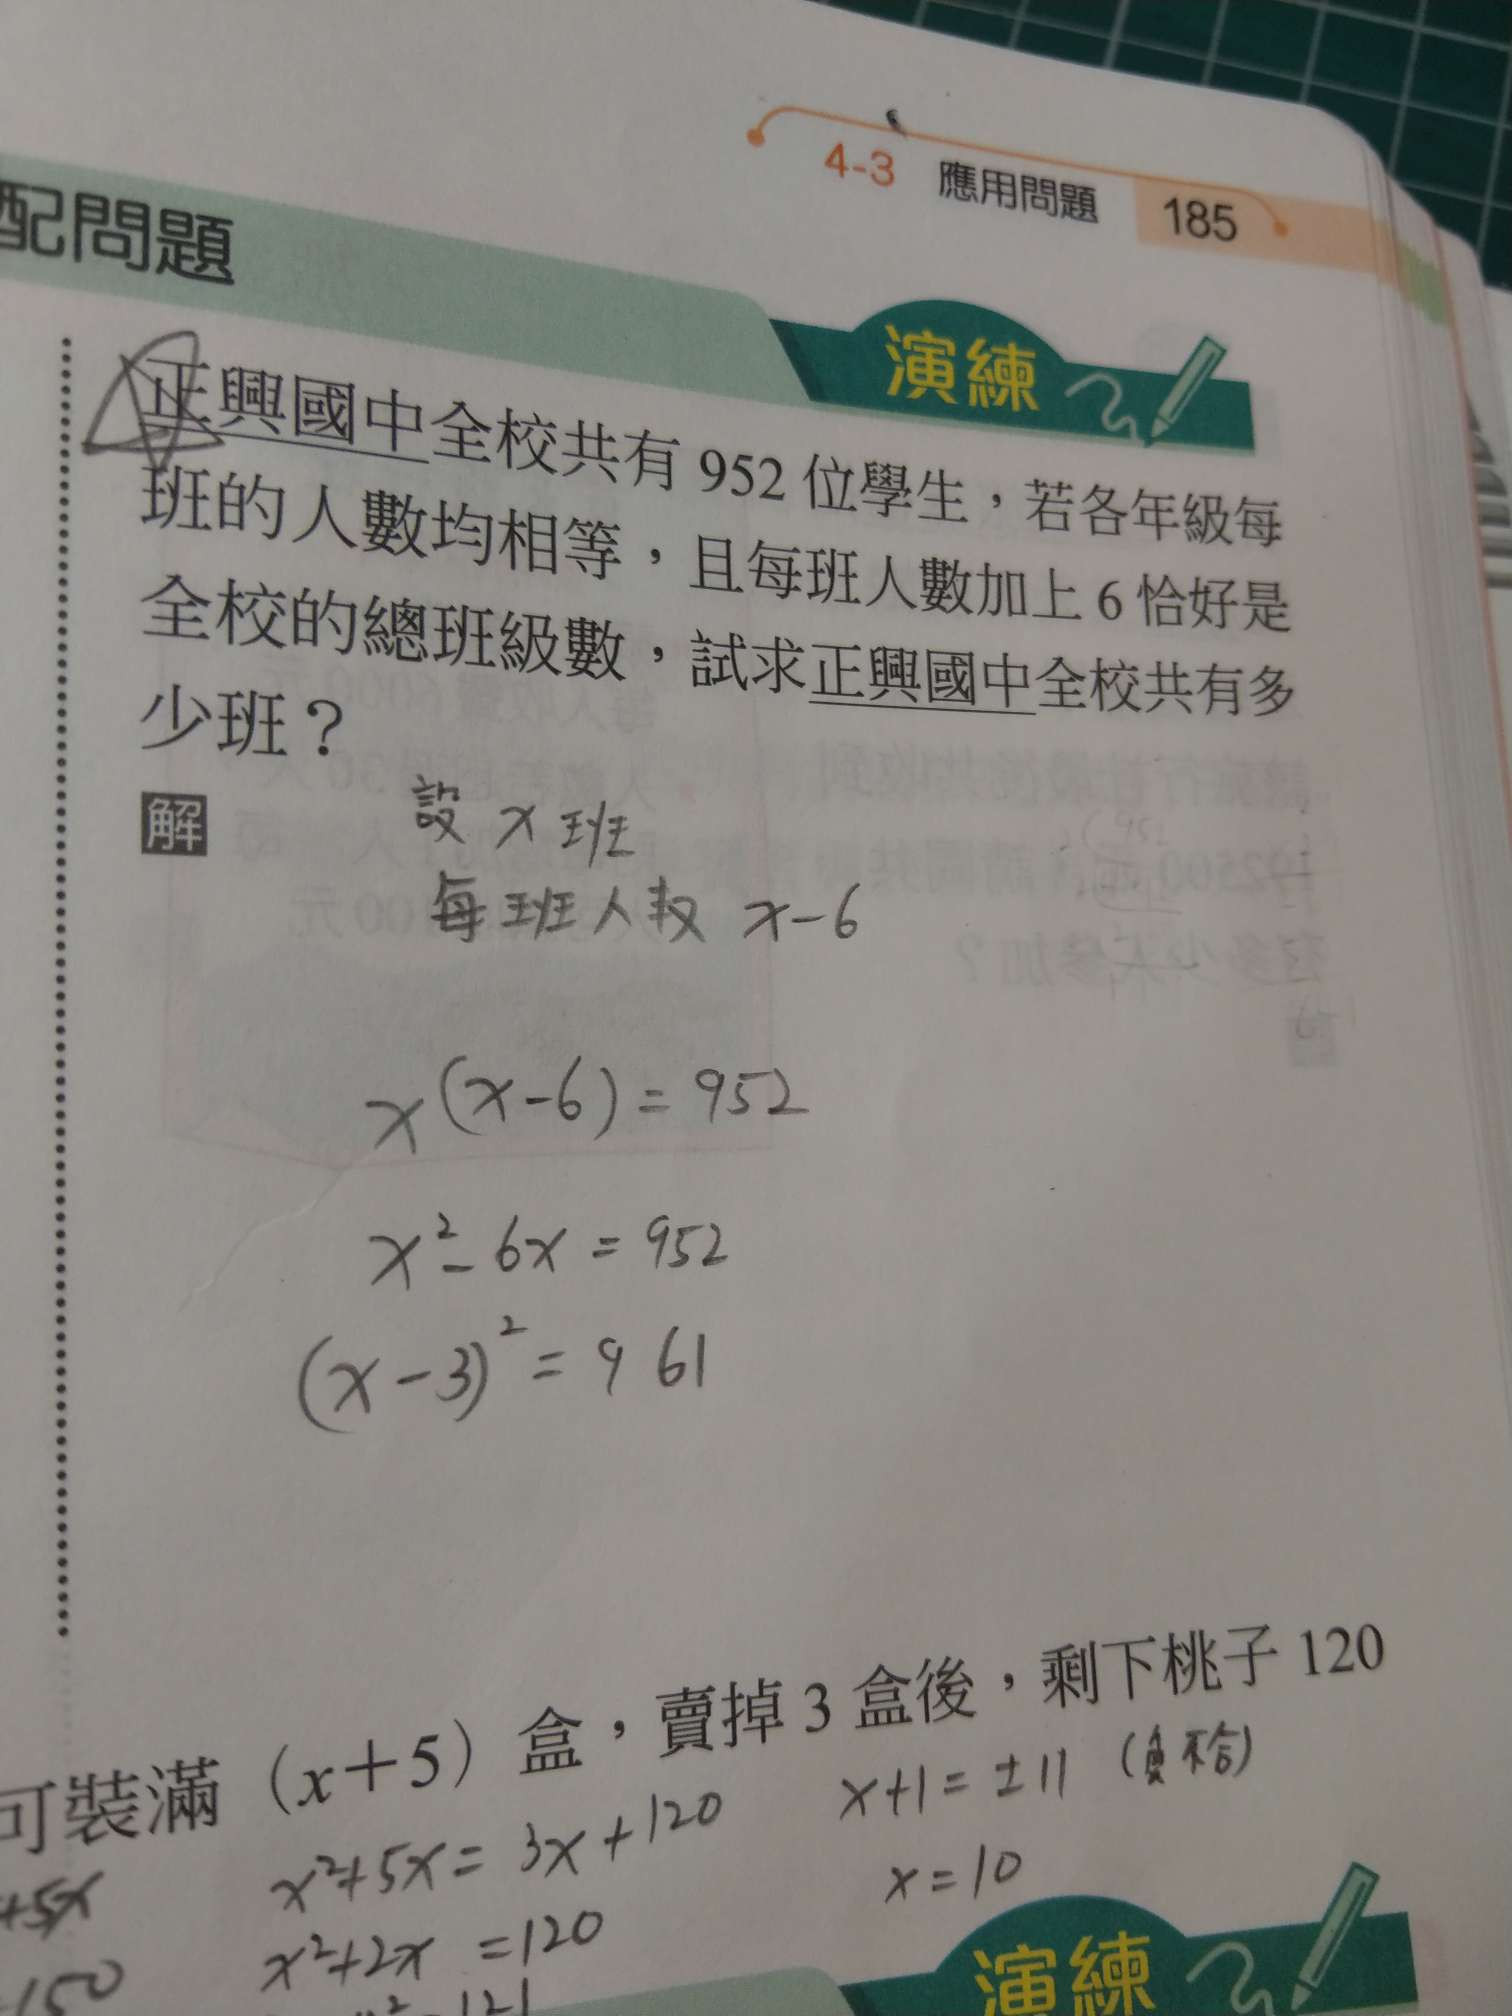 4-3 應用問題 185
配問題
演練
正興國中全校共有 952 位學生，若各年級每
班的人數均相等，且每班人數加上 6 恰好是
全校的總班級數，試求正興國中全校共有多
少班？
解
設 x 班
每班人数 x-6
x(x-6)=952
x²-6x=952
(x-3)²=961
可裝滿（x＋5）盒，賣掉 3 盒後，剩下桃子 120
x²+5x=3x+120
x+1=±11 (負不合)
+5x
x²+2x=120
x=10
150
演練